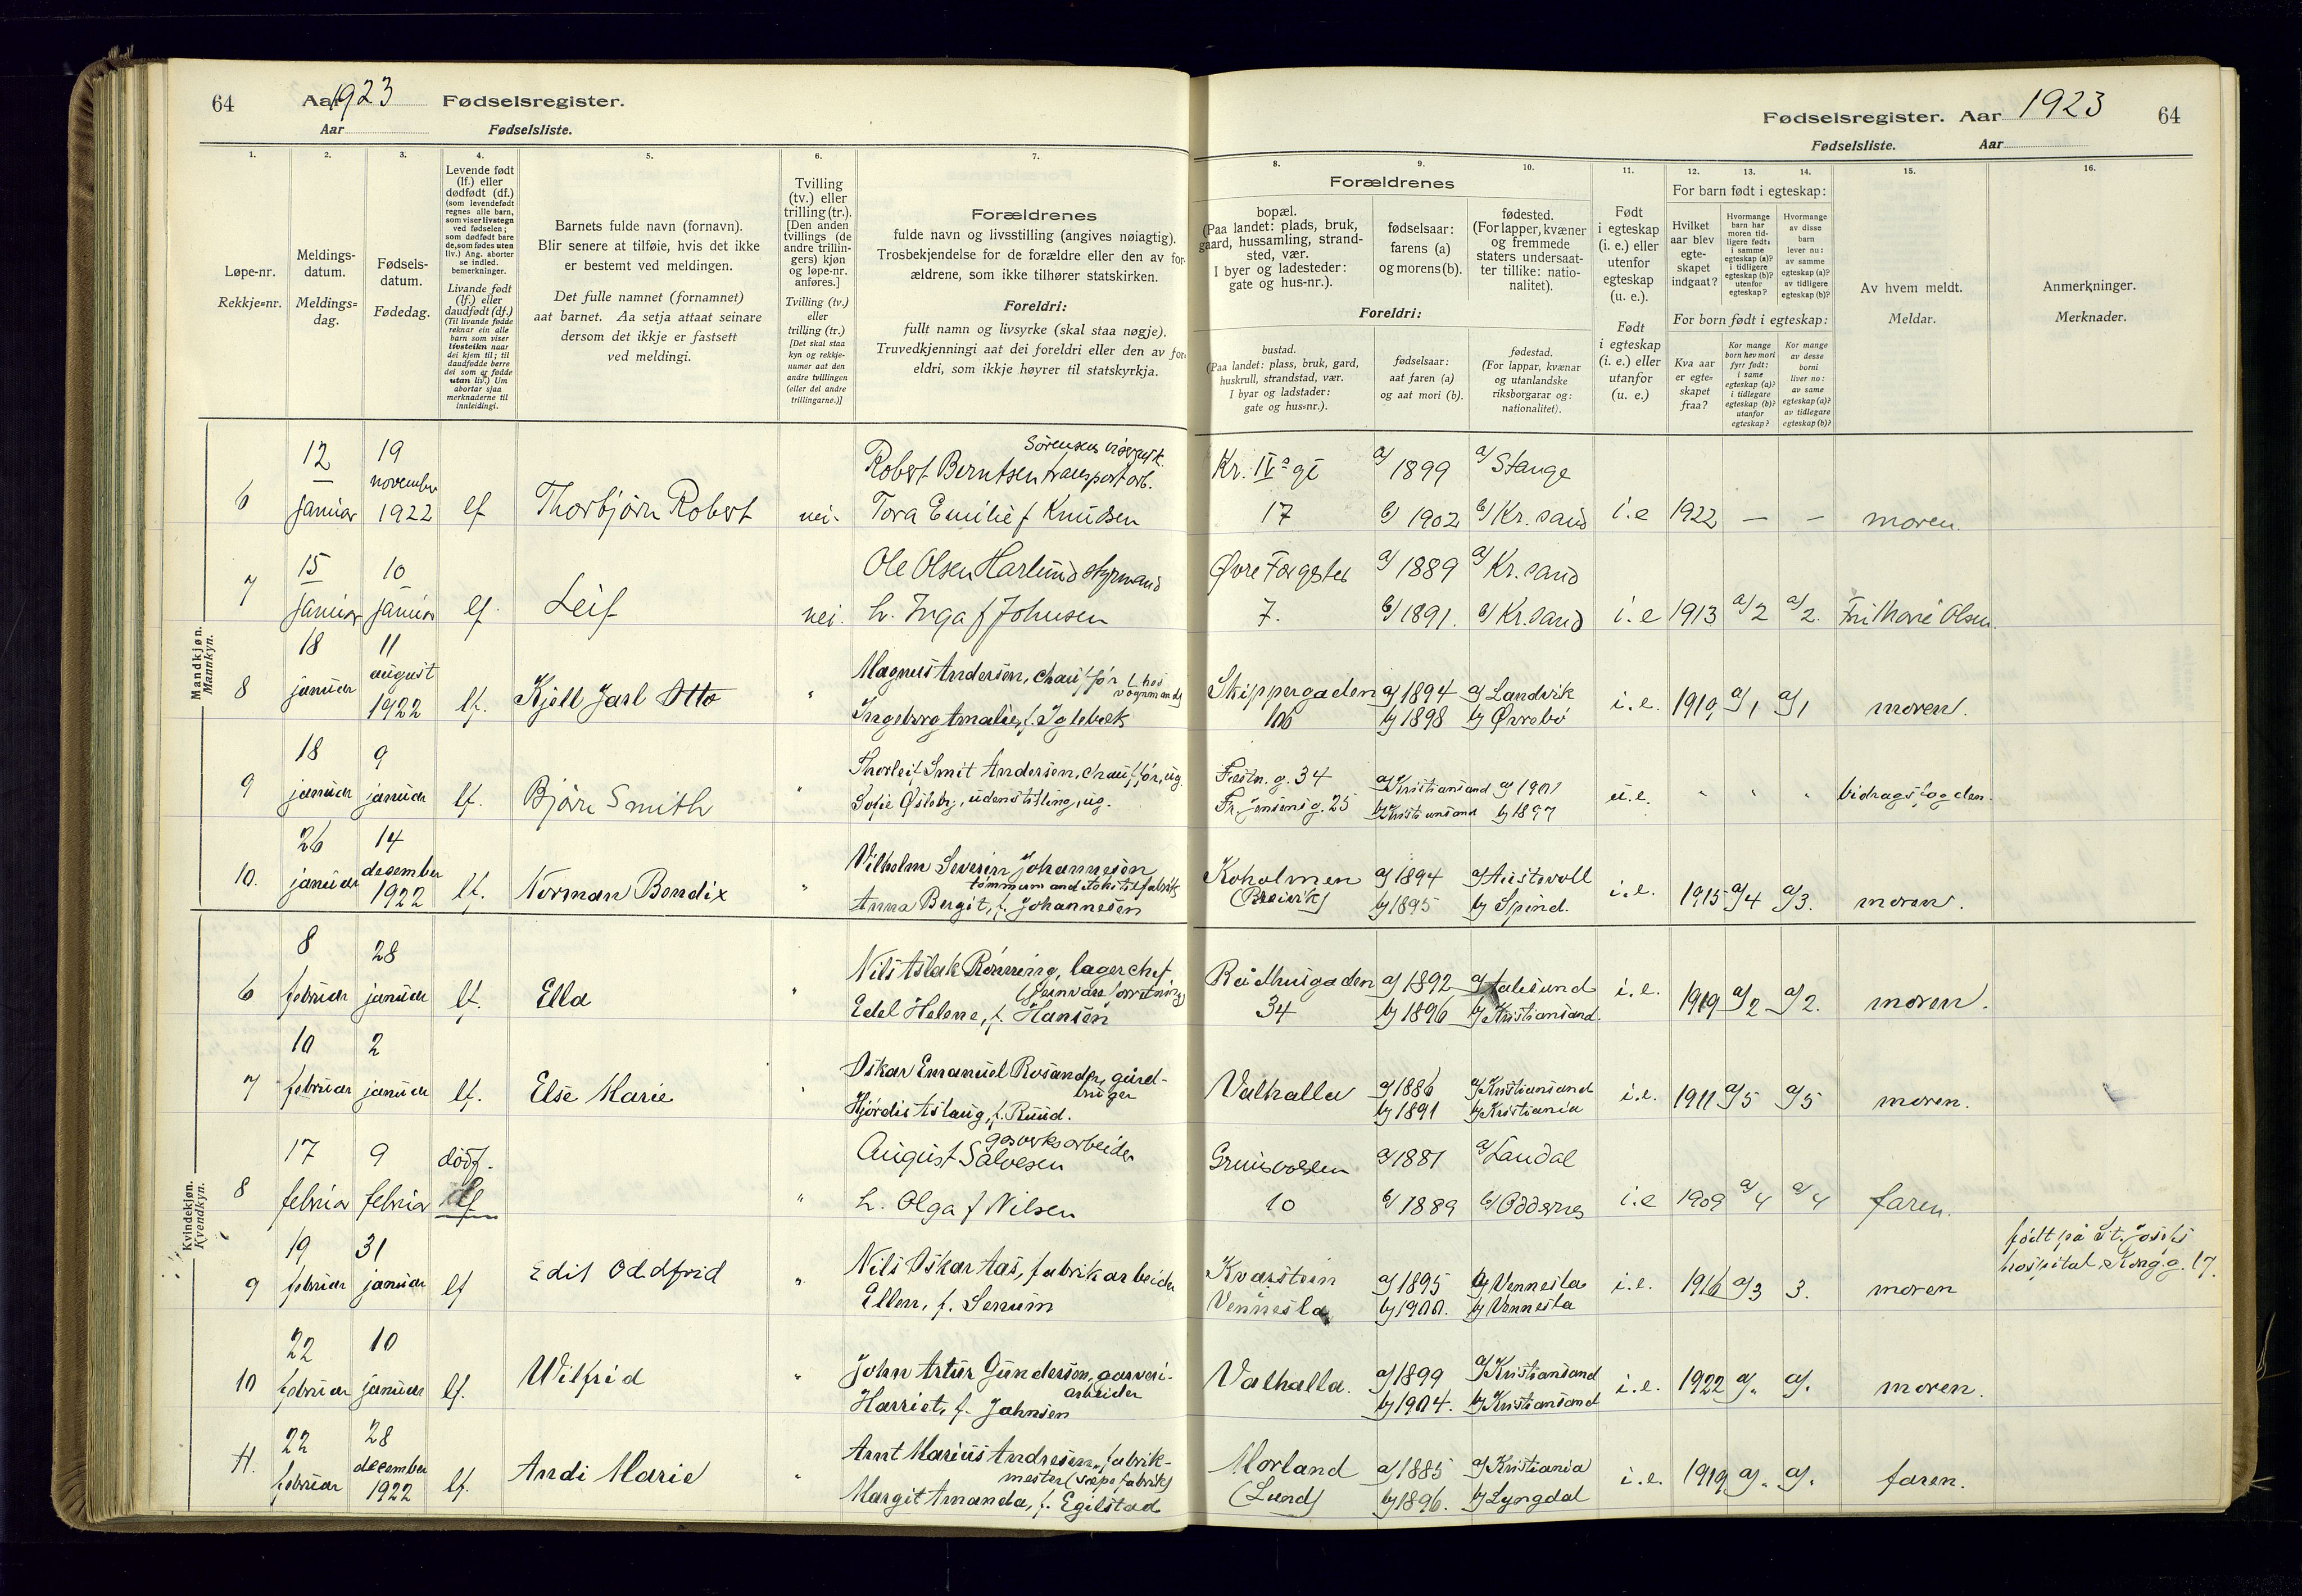 64 Aar 1923 Fødselsregister.
Aar Fødselsliste.
Fødselsregister. Aar 1923 64
Fødselsliste. Aar
1. 2. 3. 4. 5. 6. 7.
Løpe-nr.
Rekkje=nr.
Meldings-
datum.
Meldings=
dag.
Fødsels-
datum.
Fødedag.
Levende født
(lf.) eller
dødfødt (df.)
(som levendefødt
regnes alle barn,
som viser livstegn
ved fødselen;
som dødfødt bare
de, som fødes uten
liv.) Ang. aborter
se indled.
bemerkninger.
Livande født
(lf.) eller
daudfødt (df.)
(Til livande fødde
reknar ein alle
barn som viser
livsteikn naar
dei kjem til; til
daudfødde berre
dei som er fødde
utan liv.) Um
abortar sjaa
merknaderne til
innleidingi.
Barnets fulde navn (fornavn).
Blir senere at tilføie, hvis det ikke
er bestemt ved meldingen.
Det fulle namnet (fornamnet)
aat barnet. Aa setja attaat seinare
dersom det ikkje er fastsett
ved meldingi.
Tvilling
(tv.) eller
trilling (tr.).
[Den anden
tvillings (de
andre trillin-
gers) kjøn
og løpe-nr.
anføres.]
Tvilling (tv.)
eller
trilling (tr.)
[Det skal staa
kyn og rekkje-
numer aat den
andre tvillingen
(eller dei andre
trillingarne.)]
Forældrenes
fulde navn og livsstilling (angives nøiagtig).
Trosbekjendelse for de forældre eller den av for-
ældrene, som ikke tilhører statskirken.
Foreldri:
fullt namn og livsyrke (skal staa nøgje).
Truvedkjenningi aat dei foreldri eller den av for-
eldri, som ikkje høyrer til statskyrkja.
8. 9. 10. 11. 12. 13. 14. 15. 16.
Forældrenes
bopæl.
(Paa landet: plads, bruk,
gaard, hussamling, strand-
sted, vær.
I byer og ladesteder:
gate og hus-nr.).
fødselsaar:
farens (a)
og morens (b).
fødested.
(For lapper, kvæner
og fremmede
staters undersaat-
ter tillike: natio-
nalitet).
Foreldri:
bustad.
(Paa landet: plass, bruk, gard,
huskrull, strandstad, vær.
I byar og ladstader:
gate og hus=nr.).
fødselsaar:
aat faren (a)
og aat mori (b).
fødestad.
(For lappar, kvænar
og utanlandske
riksborgarar og:
nationalitet).
Født
i egteskap
(i. e.) eller
utenfor
egteskap
(u. e.).
Født
i egteskap
(i. e.) eller
utanfor
(u. e.)
For barn født i egteskap:
Hvilket
aar blev
egte-
skapet
indgaat?
Hvormange
barn har
moren tid-
ligere født:
i samme
egteskap (a)?
i tidligere
egteskap (b)?
utenfor
egteskap?
Hvormange
av disse
barn
lever nu:
av samme
egteskap (a)?
av tidligere
egteskap (b)?
For born født i egteskap:
Kva aar
er egte=
skapet
fraa?
Kor mange
born hev mori
fyrr født:
i same
egteskap (a)?
i tidlegare
egteskap (b)?
utanfor
egteskap?
Kor mange
av desse
borni
liver no:
av same
egteskap (a)?
av tidlegare
egteskap (b)?
Av hvem meldt.
Meldar.
Anmerkninger.
Merknader.
Mandkjøn.
Mannkyn.
6 12 januar 19 november 1922 lf Thorbjørn Robert nei. Robert Berntsen Sørensen transportarb. Tora Emilie f Knudsen Kr. IVs gt 17 a/ 1899 b/ 1902 a/ Stange b/ Kr. sand i.e 1922 — — moren.
7 15 januar 10 januar lf. Leif nei. Ole Olsen Harlund styrmand h. Inga f Johnsen Øvre 7. a/ 1889 b/ 1891. a/ Kr. sand b/ Kr. sand i.e 1913 a/2 a/2. Olsen.
8 18 januar 11 august 1922 lf. Kjell Jarl Otto " Magnus Andersen, chauffør (hos vognmand) Ingeborg Amalie, f. Iglebæk Skippergaden 106 a/ 1894 b/ 1898 a/ Landvik b/ Øvrebø i.e. 1919 a/1 a/1 moren.
9 18 januar 9 januar lf. Bjørn Smith " Thorleif Smit Andersen, chauffør, ug. Sofie Østeby, uden stilling, ug. Festn. g. 34 Fr. Jensens g. 25 a/ Kristiansand a/ 1901 b/ Kristiansand b/ 1897 u.e. " " " bidragsfogden.
10. 26 januar 14 desember 1922 lf. Norman Bendix " Vilhelm Severin Johannesen Anna Bergit, f. Johannesen Koholmen (Breivik) a/ 1894 b/ 1895 a/ Austevoll b/ Spind. i.e. 1915 a/4 a/3. moren.
Kvindekjøn.
Kvendkyn.
6 8 februar 28 januar lf. Ella " Nils Aslak Rønning, lagerchef (jernvareforretning) Edel Helene, f. Hansen Rådhusgaden 34 a/ 1892 b/ 1896 a/ Aalesund b/ Kristiansand. i.e. 1919 a/2 a/2. moren.
7 10 februar 2 januar lf. Else Marie " Oskar Emanuel Rosander, gård- bruger Hjørdis Aslaug, f. Ruud. Valhalla a/ 1886 b/ 1891 a/ Kristiansand b/ Kristiania i.e. 1911 a/5 a/5 moren.
8 17 februar 9 februar dødf. " August Salvesen gasverksarbeider h. Olga f Nilsen 10 a/ 1881 b/ 1889 a/ Laudal b/ Oddernes i.e 1909 a/4 a/4 faren.
9 19 februar 31 januar lf Edit Oddfrid " Nils Oskar Aas, fabrikarbeider Ellen, f. Senum Kvarstein Vennesla a/ 1895 b/ 1900. a/ Vennesla b/ Vennesla i.e. 1916 a/3 3. moren født på St. Josefs hospital, Kong. g. 17.
10 22 februar 10 januar lf. Wilfrid " John Artur Gundersen, garveri- arbeider Harriet, f. Jahnsen Valhalla. a/ 1899 b/ 1904. a/ Kristiansand b/ Kristiansand i.e. 1922 a/. a/. moren.
11. 22 februar 28 desember 1922 lf. Andi Marie " Arnt Marius Andresen, fabrik- mester (såpefabrik) Margit Amanda, f. Egilstad Morland (Lund) a/ 1885 b/ 1896. a/ Kristiania b/ Lyngdal i.e. 1919 a/. a/. faren.